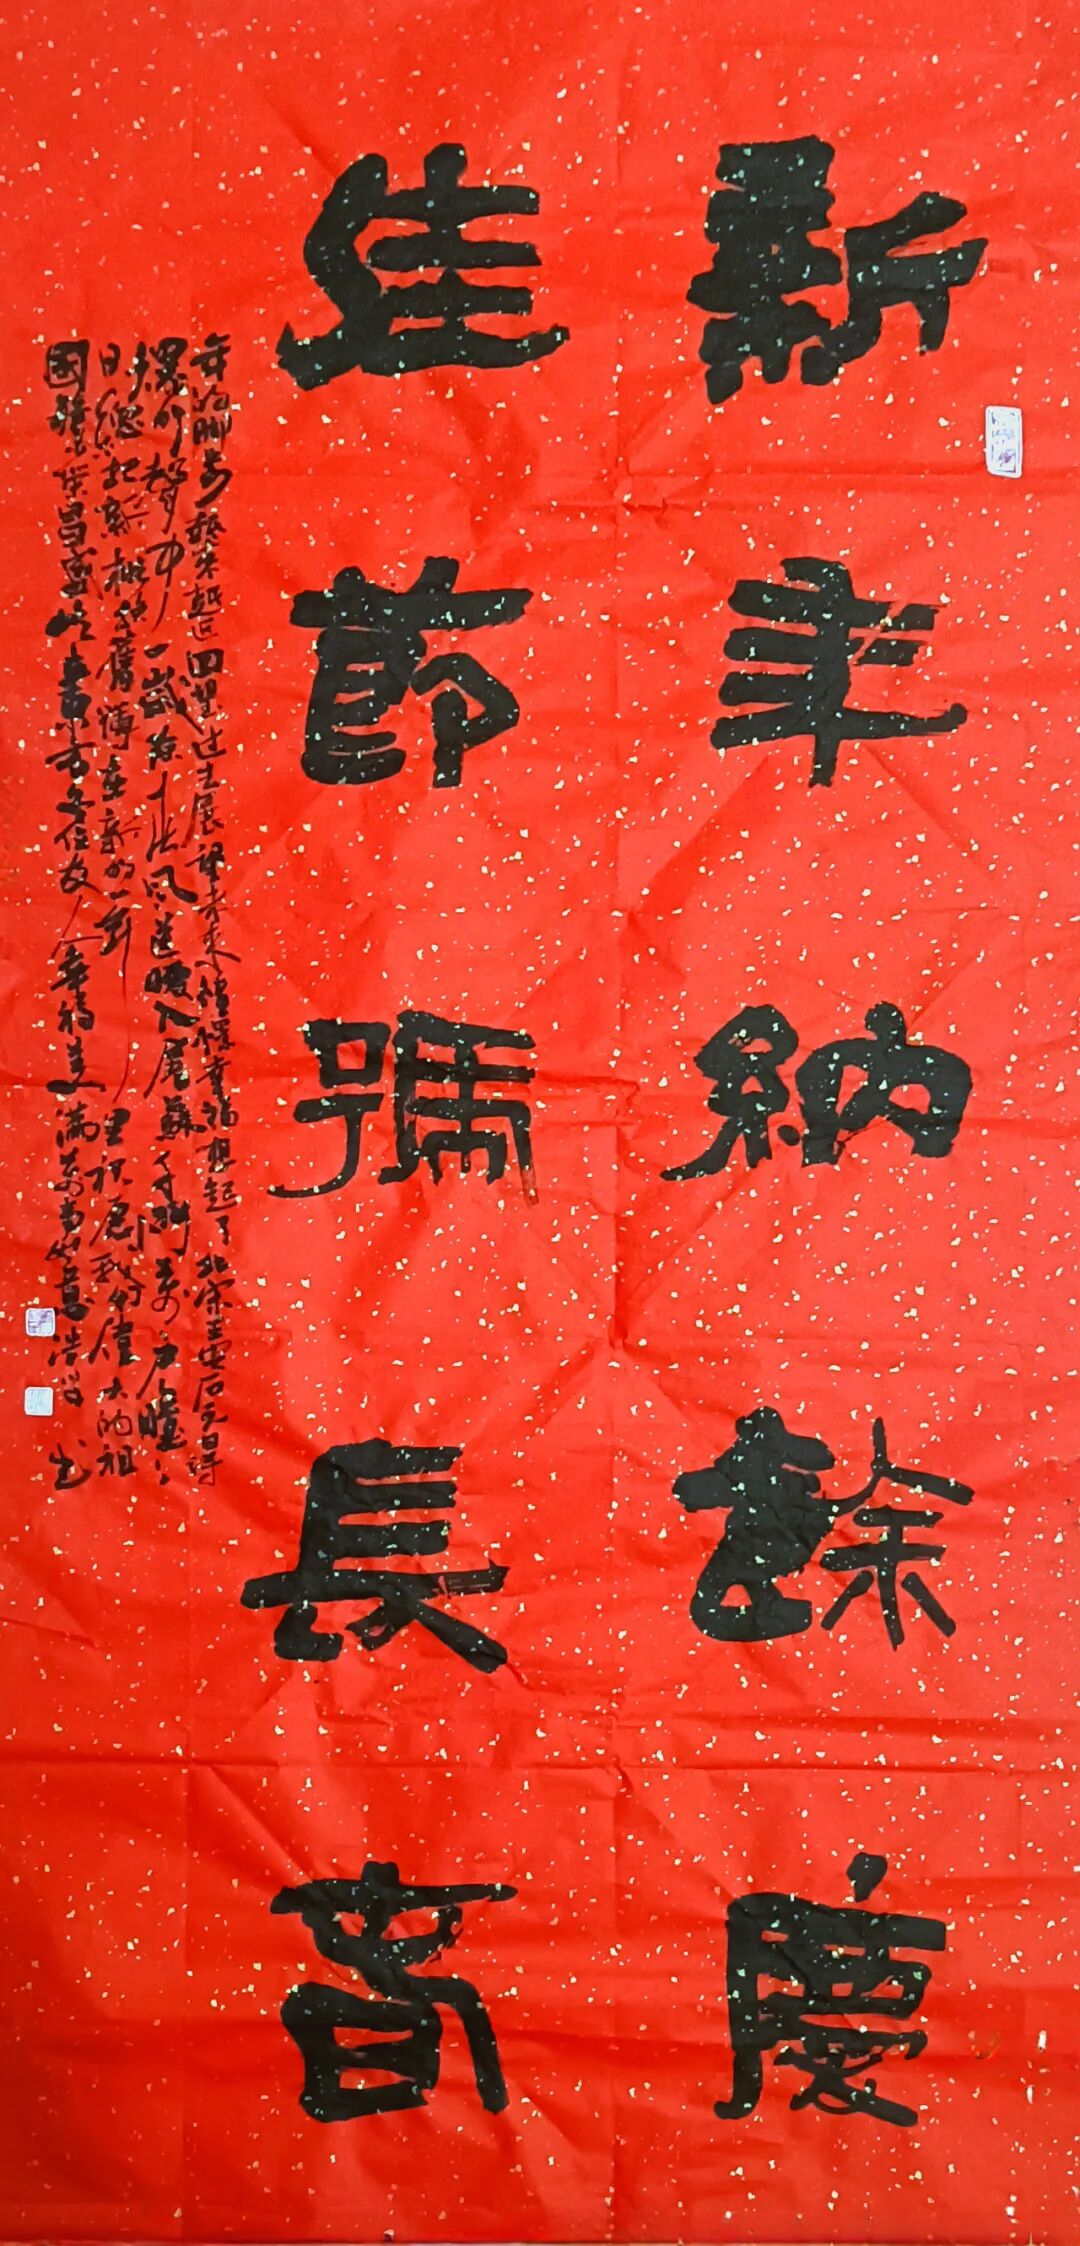 新年納餘慶
佳節號長春
年的脚步越来越近回望过去展望未来憧憬幸福想起了北宋王安石元日诗
爆竹声中一歲除春风送暖入屠蘇千门万户曈曈
日總把新桃换舊符在新的一年里祝愿我们偉大的祖
國繁荣昌盛各位友人幸福美满万事如意书